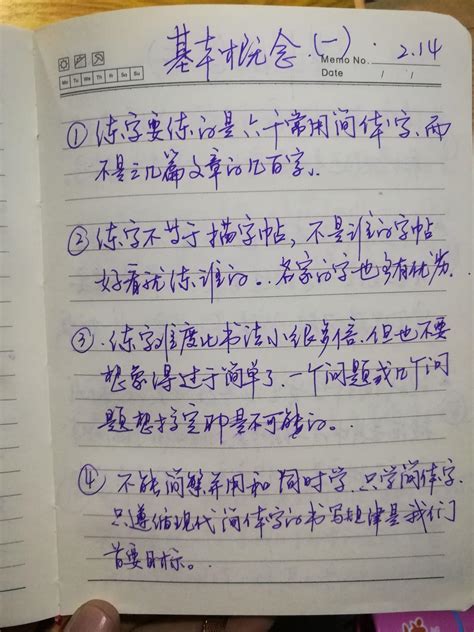 基本概念(一). 2.14
Memo No.
Mo Tu We Th Fr Sa Su
Date / /
①练字要练的是六千常用简体字,而
不是三几篇文章的几百字。
②练字不等于描字帖,不是谁的字帖
好看就练谁的。名家的字也各有优劣。
③.练字难度比书法小很多倍.但也不要
想象得过于简单了.一个问题或几个问
题想搞定 是不可能的。
④ 不能简繁并用和同时学.只学简体字.
只遵循现代简体字的书写规律是我们
首要目标。